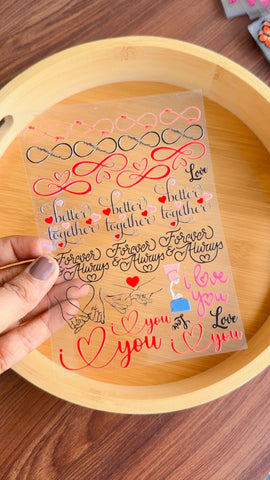 Love
better together better together better together
Forever & Always Forever & Always Forever & Always
i love you
Love
i love you
i love you